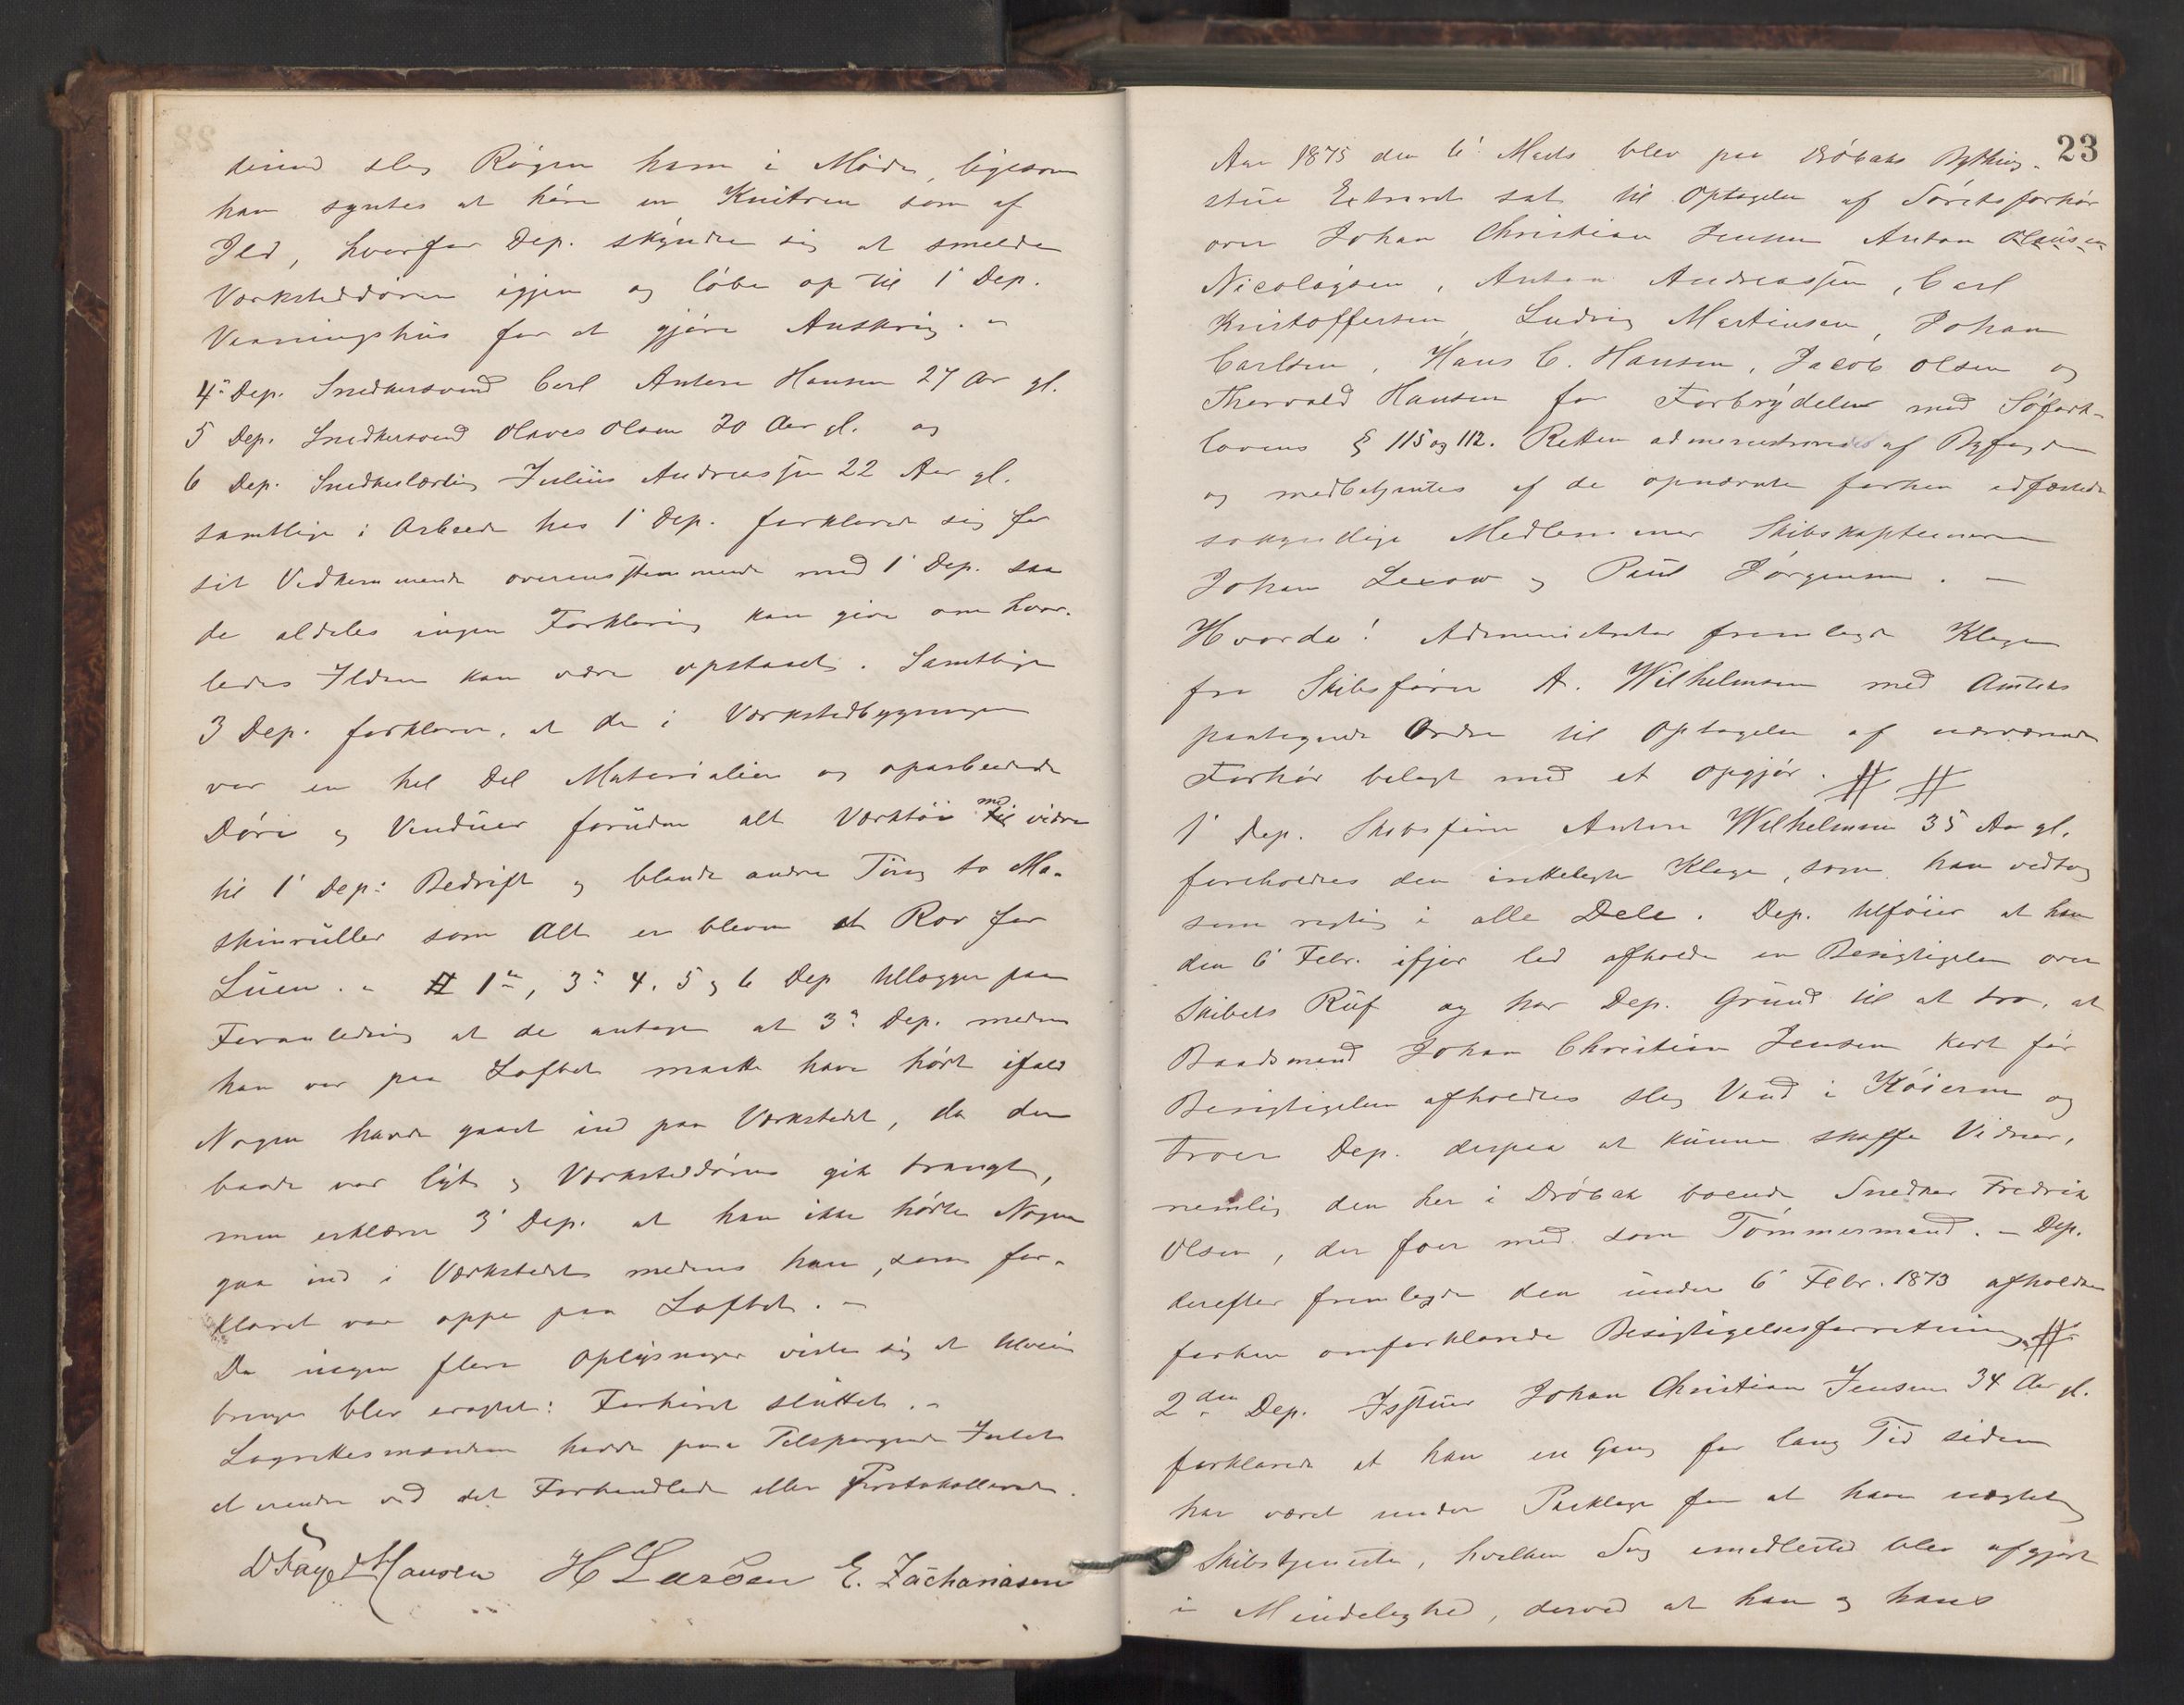 derind slog Røgen ham i Møde, ligesom
han syntes at høre en Knitren som af
Ild, hvorfor Dep. skyndte sig at smelde
Værksteddøren igjen og løbe op til 1' Dep.
Vaaningshus for at gjøre Anskrig. -
4' Dep. Snedkersvend Carl Anton Hansen 27 Aar gl.
5 Dep. Snedkersvend Olaves Olsen 20 Aar gl. og
6 Dep. Snedkerlærling Julius Andreassen 22 Aar gl.
samtlige i Arbeide hos 1' Dep. forklarede sig for
sit Vedkommende overensstemmende med 1' Dep. samt at
de aldeles ingen Forklaring kan give om hvor-
ledes Ilden kan være opstaaet. Samtlige
3 Dep. forklarer, at der i Værkstedbygningen
var en hel Del Materialier og oparbeidede
Døre og Vinduer foruden alt Værktøi med videre
til 1' Dep: Bedrift og blandt andre Ting to Ma-
skinruller som Alt er bleven et Rov for
Luen. - # 1', 3' 4. 5 og 6 Dep tillægger paa
Foranledning at de antager at 3' Dep. medens
han var paa Loftet maatte have hørt ifald
Nogen havde gaaet ind paa Værkstedet, da der
baade var lydt og Værksteddøren gik trangt,
men erklærer 3' Dep. at han ikke hørte Nogen
gaa ind i Værkstedet medens han, som for-
klaret var oppe paa Loftet. -
Da ingen flere Oplysninger viste sig at tilveie
bringe blev eragtet: Forhøret sluttet. -
Lagrettesmændene havde paa Tilspørgende Intet
at erindre ved det Forhandlede eller Protokollerede.
Hansen H Larsen E. Zachariasen
23
Aar 1875 den 6' Marts blev paa Drøbaks Bything-
stue Extraret sat til Optagelse af Søretsforhør
over Johan Christian Jensen Anton Olausen
Nicolaysen, Anton Andreassen, Carl
Kristoffersen, Ludvig Martinsen, Johan
Carlsen, Hans C. Hansen, Jacob Olsen og
Thorvald Hansen for Forbrydelser mod Søfarts-
lovens § 115 og 112. Retten administreredes af Byfogden
og medbetjentes af de opnævnte forhen edfæstede
søkyndige Medlemmer Skibskapteinerne
Johan Lexow og Paul Jørgensen. -
Hvorda! Administrator fremlagde Klage
fra Skibsfører A. Wilhelmsen med Amtets
paategnede Ordre til Optagelse af nærværende
Forhør belagt med et Opgjør. # #
1' Dep. Skibsfører Anton Wilhelmsen 35 Aar gl.
foreholdtes den indklagede Klage, som han vedtog
som rigtig i alle Dele. Dep. tilføier at han
den 6' Febr. ifjor lod afholde en Besigtigelse over
Skibets Ruf og har Dep. Grund til at tro, at
Baadsmand Johan Christian Jensen kort før
Besigtigelsen afholdtes slog Vand i Køierne og
troer Dep. derpaa at kunne skaffe Vidner,
nemlig den her i Drøbak boende Snedker Fredrik
Olsen, der foer med som Tømmermand. - Dep.
derefter fremlagde den under 6' Febr. 1873 afholdte
forhen omforklarede Besigtigelsesforretning. #
2den Dep. Johan Christian Jensen 34 Aar gl.
forklarede at han en Gang for lang Tid siden
har været under Paaklage for at have nægtet
Skibstjeneste, hvilken Sag imidlertid blev afgjort
i Mindelighed, derved at han og hans